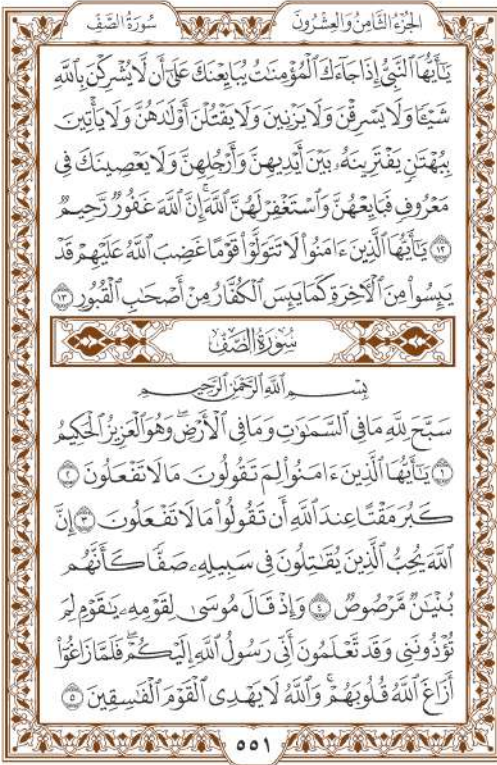 الجُزْءُ الثَّامِنُ وَالعِشْرُونَ سُورَةُ الصَّفِّ
يَٰٓأَيُّهَا ٱلنَّبِيُّ إِذَا جَآءَكَ ٱلْمُؤْمِنَٰتُ يُبَايِعْنَكَ عَلَىٰٓ أَن لَّا يُشْرِكْنَ بِٱللَّهِ
شَيْـًٔا وَلَا يَسْرِقْنَ وَلَا يَزْنِينَ وَلَا يَقْتُلْنَ أَوْلَٰدَهُنَّ وَلَا يَأْتِينَ
بِبُهْتَٰنٍ يَفْتَرِينَهُۥ بَيْنَ أَيْدِيهِنَّ وَأَرْجُلِهِنَّ وَلَا يَعْصِينَكَ فِي
مَعْرُوفٍ فَبَايِعْهُنَّ وَٱسْتَغْفِرْ لَهُنَّ ٱللَّهَۚ إِنَّ ٱللَّهَ غَفُورٌ رَّحِيمٌ
١٢ يَٰٓأَيُّهَا ٱلَّذِينَ ءَامَنُوا۟ لَا تَتَوَلَّوْا۟ قَوْمًا غَضِبَ ٱللَّهُ عَلَيْهِمْ قَدْ
يَئِسُوا۟ مِنَ ٱلْأٓخِرَةِ كَمَا يَئِسَ ٱلْكُفَّارُ مِنْ أَصْحَٰبِ ٱلْقُبُورِ ١٣
سُورَةُ الصَّفِّ
بِسْمِ ٱللَّهِ ٱلرَّحْمَٰنِ ٱلرَّحِيمِ
سَبَّحَ لِلَّهِ مَا فِي ٱلسَّمَٰوَٰتِ وَمَا فِي ٱلْأَرْضِۖ وَهُوَ ٱلْعَزِيزُ ٱلْحَكِيمُ
١ يَٰٓأَيُّهَا ٱلَّذِينَ ءَامَنُوا۟ لِمَ تَقُولُونَ مَا لَا تَفْعَلُونَ ٢
كَبُرَ مَقْتًا عِندَ ٱللَّهِ أَن تَقُولُوا۟ مَا لَا تَفْعَلُونَ ٣ إِنَّ
ٱللَّهَ يُحِبُّ ٱلَّذِينَ يُقَٰتِلُونَ فِي سَبِيلِهِۦ صَفًّا كَأَنَّهُم
بُنْيَٰنٌ مَّرْصُوصٌ ٤ وَإِذْ قَالَ مُوسَىٰ لِقَوْمِهِۦ يَٰقَوْمِ لِمَ
تُؤْذُونَنِي وَقَد تَّعْلَمُونَ أَنِّي رَسُولُ ٱللَّهِ إِلَيْكُمْۖ فَلَمَّا زَاغُوٓا۟
أَزَاغَ ٱللَّهُ قُلُوبَهُمْۚ وَٱللَّهُ لَا يَهْدِي ٱلْقَوْمَ ٱلْفَٰسِقِينَ ٥
٥٥١